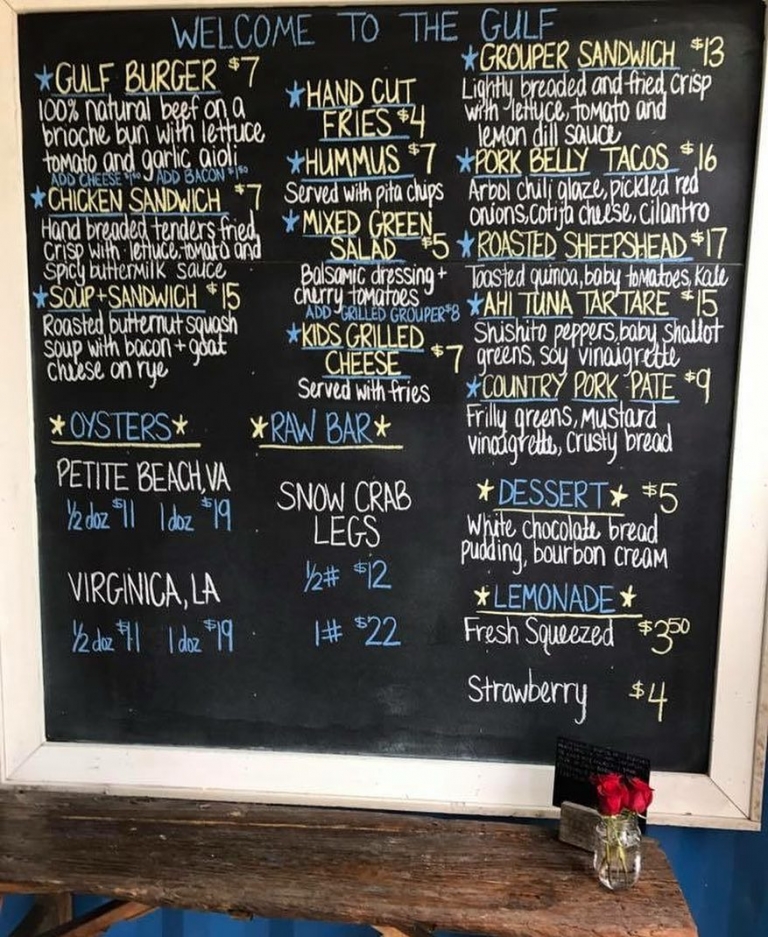 WELCOME TO THE GULF
★GULF BURGER $7
100% natural beef on a
brioche bun with lettuce
tomato and garlic aioli
ADD CHEESE ADD BACON
★CHICKEN SANDWICH $7
Hand breaded tenders fried
crisp with lettuce, tomato and
spicy buttermilk sauce
★SOUP+SANDWICH $15
Roasted butternut squash
soup with bacon + goat
cheese on rye
★HAND CUT
FRIES $4
★HUMMUS $7
Served with pita chips
★MIXED GREEN
SALAD $5
Balsamic dressing +
cherry tomatoes
ADD GRILLED GROUPER $8
★KIDS GRILLED
CHEESE $7
Served with fries
★GROUPER SANDWICH $13
Lightly breaded and fried crisp
with lettuce, tomato and
lemon dill sauce
★PORK BELLY TACOS $16
Arbol chili glaze, pickled red
onions, cotija cheese, cilantro
★ROASTED SHEEPSHEAD $17
Toasted quinoa, baby tomatoes, kale
★AHI TUNA TARTARE $15
Shishito peppers, baby shallot
greens, soy vinaigrette
★COUNTRY PORK PATE $9
Frilly greens, Mustard
vinaigrette, crusty bread
★OYSTERS★
PETITE BEACH, VA
½ doz $11 1 doz $19
VIRGINICA, LA
½ doz $11 1 doz $19
★RAW BAR★
SNOW CRAB
LEGS
½# $12
1# $22
★DESSERT★ $5
White chocolate bread
pudding, bourbon cream
★LEMONADE★
Fresh Squeezed $3.50
Strawberry $4